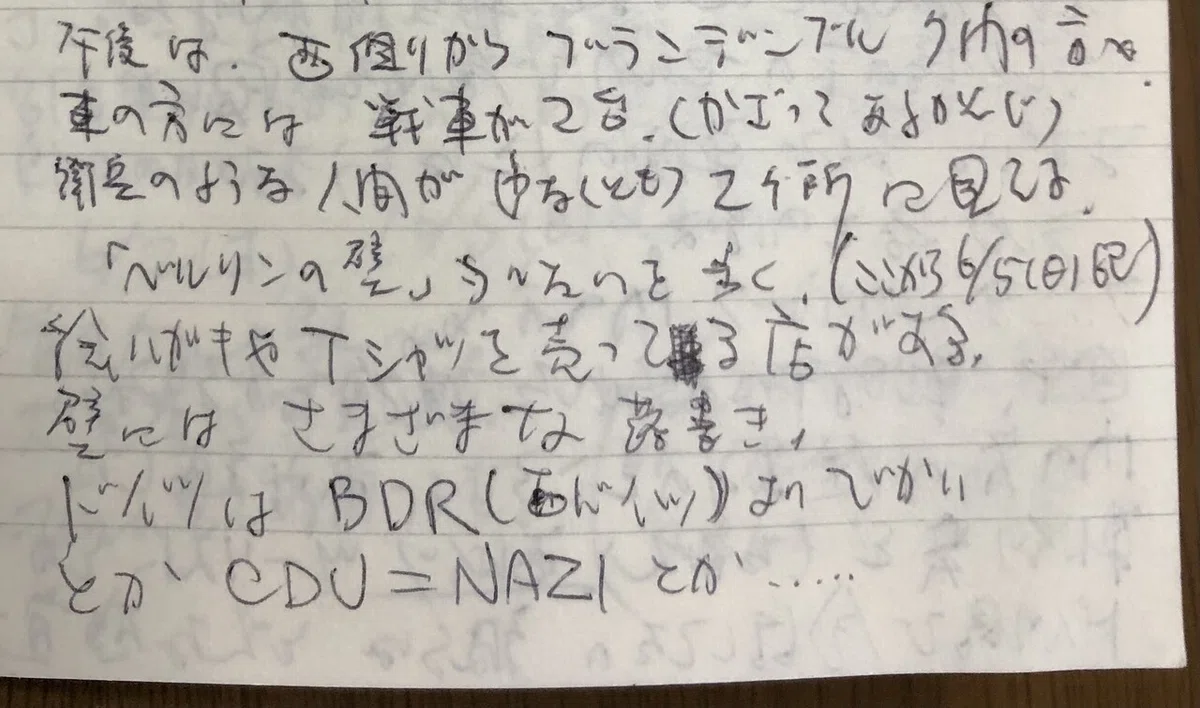 午後は、西側からブランデンブルク門の方へ。
東の方には 戦車が2台。(かざってあるかんじ)
衛兵のような人間が少なくとも2ヶ所に見える。
「ベルリンの壁」づたいを歩く。(ここから6/5(日)記)
絵ハガキやTシャツを売ってる店がある。
壁には さまざまな落書き。
ドイツは BDR(西ドイツ)よりでかい
とか CDU=NAZI とか……